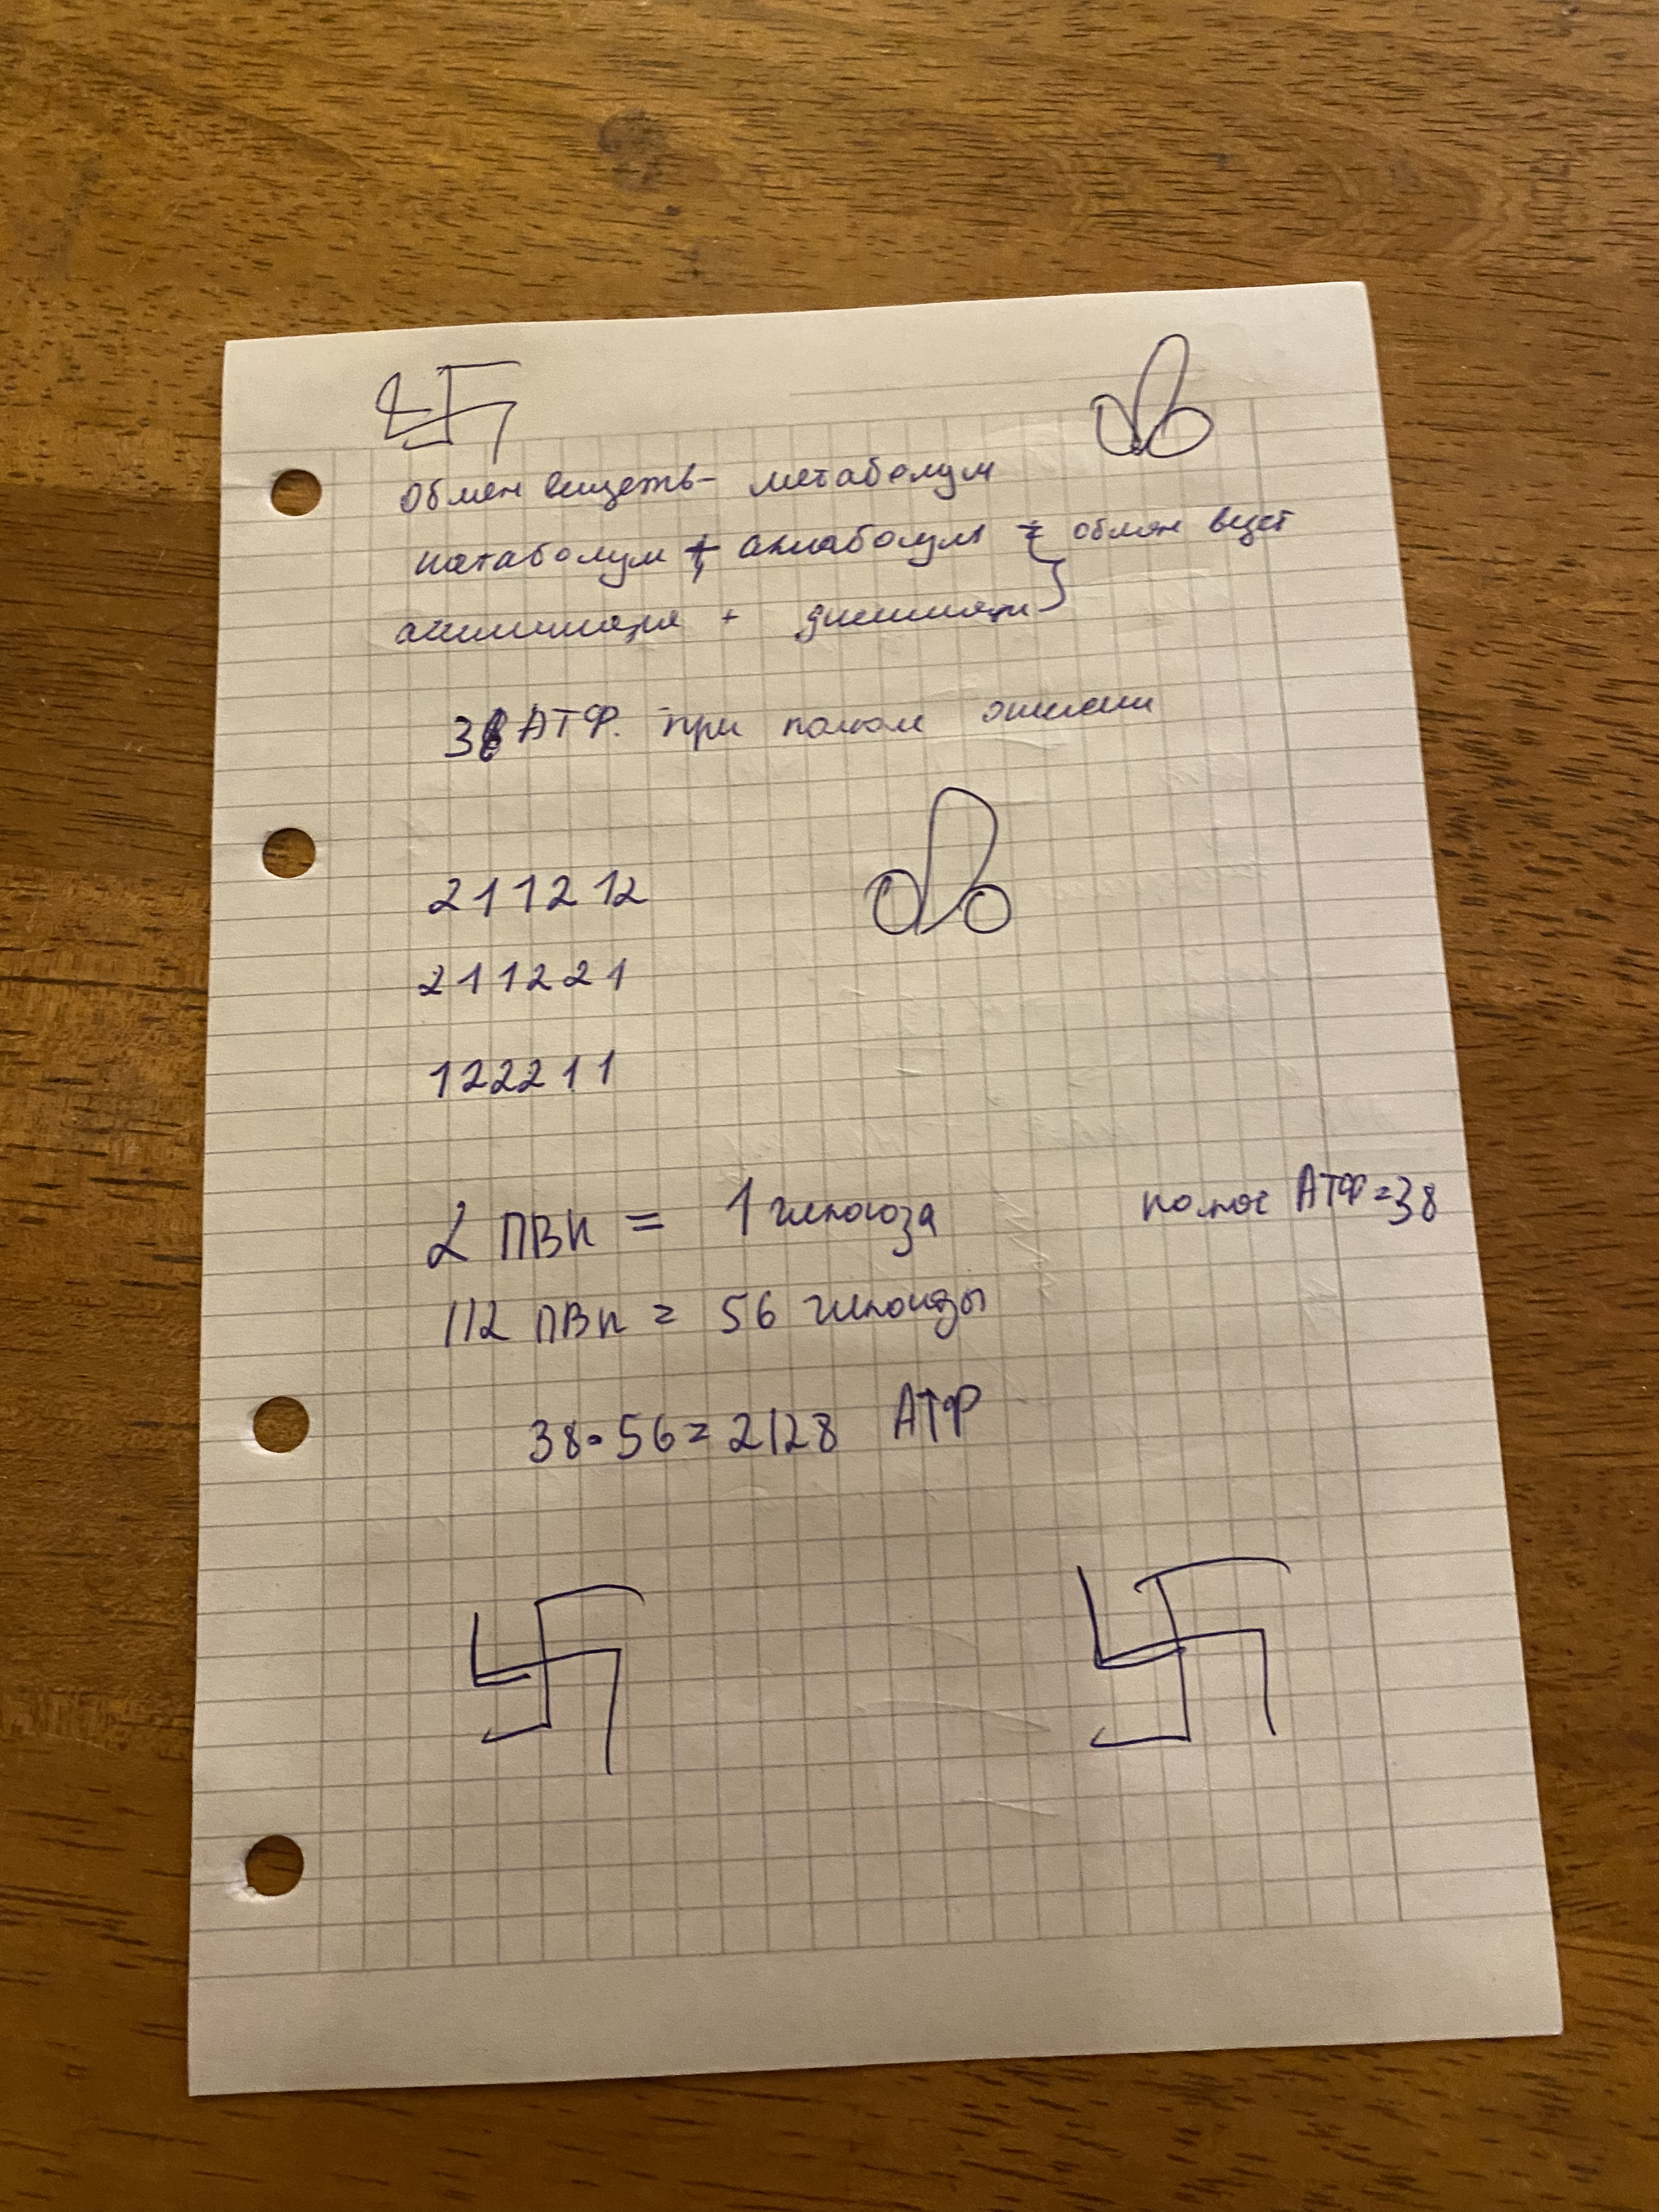 Обмен веществ - метаболизм
катаболизм + анаболизм = обмен вещест
ассимиляция + диссимиляция
38 АТФ. при полном окислении
211212
211221
122211
2 ПВК = 1 глюкоза
полное АТФ = 38
112 ПВК = 56 глюкозы
38 • 56 = 2128 АТФ